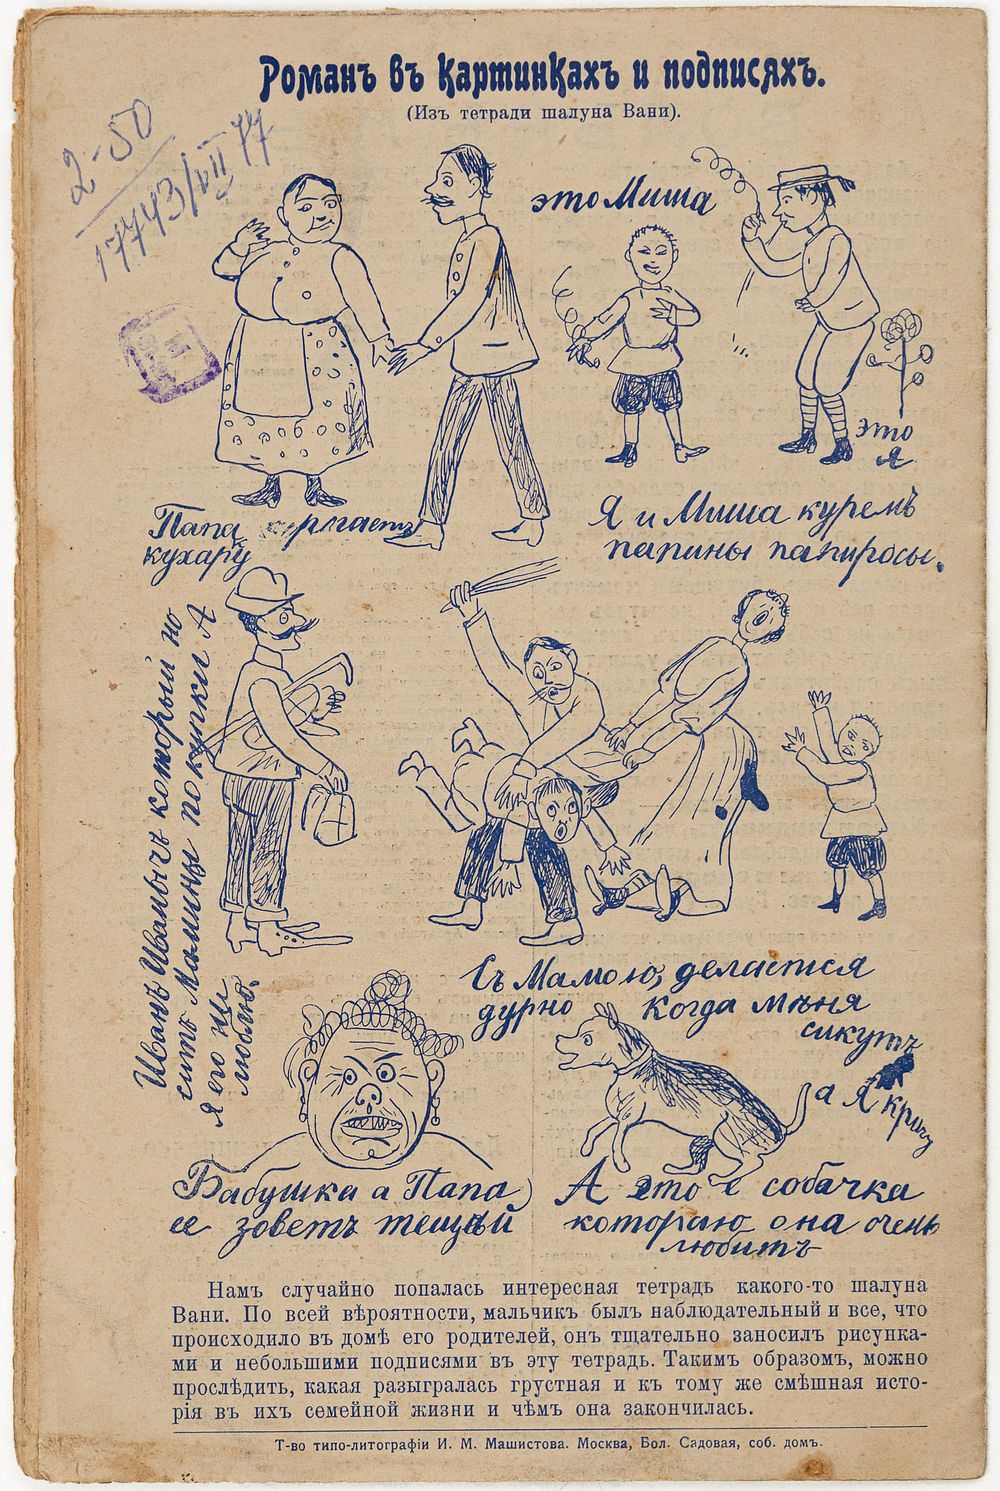 Романъ въ картинкахъ и подписяхъ.
(Изъ тетради шалуна Вани).
2-50
17743/VII 77
это Миша
это
я
Папа
кухарку
Я и Миша куремъ
папины папиросы.
Иванъ Иванычъ который но
ситъ Мамины покупки А
я его не
люблю.
Съ Мамою, делается
дурно когда мѣня
сикутъ
а я кричу
Бабушка а Папа
ее зоветъ тещѣй
А это е собачка
которою она очень
любитъ
Намъ случайно попалась интересная тетрадь какого-то шалуна
Вани. По всей вѣроятности, мальчикъ былъ наблюдательный и все, что
происходило въ домѣ его родителей, онъ тщательно заносилъ рисунка-
ми и небольшими подписями въ эту тетрадь. Такимъ образомъ, можно
прослѣдить, какая разыгралась грустная и къ тому же смѣшная исто-
рія въ ихъ семейной жизни и чѣмъ она закончилась.
Т-во типо-литографіи И. М. Машистова. Москва, Бол. Садовая, соб. домъ.